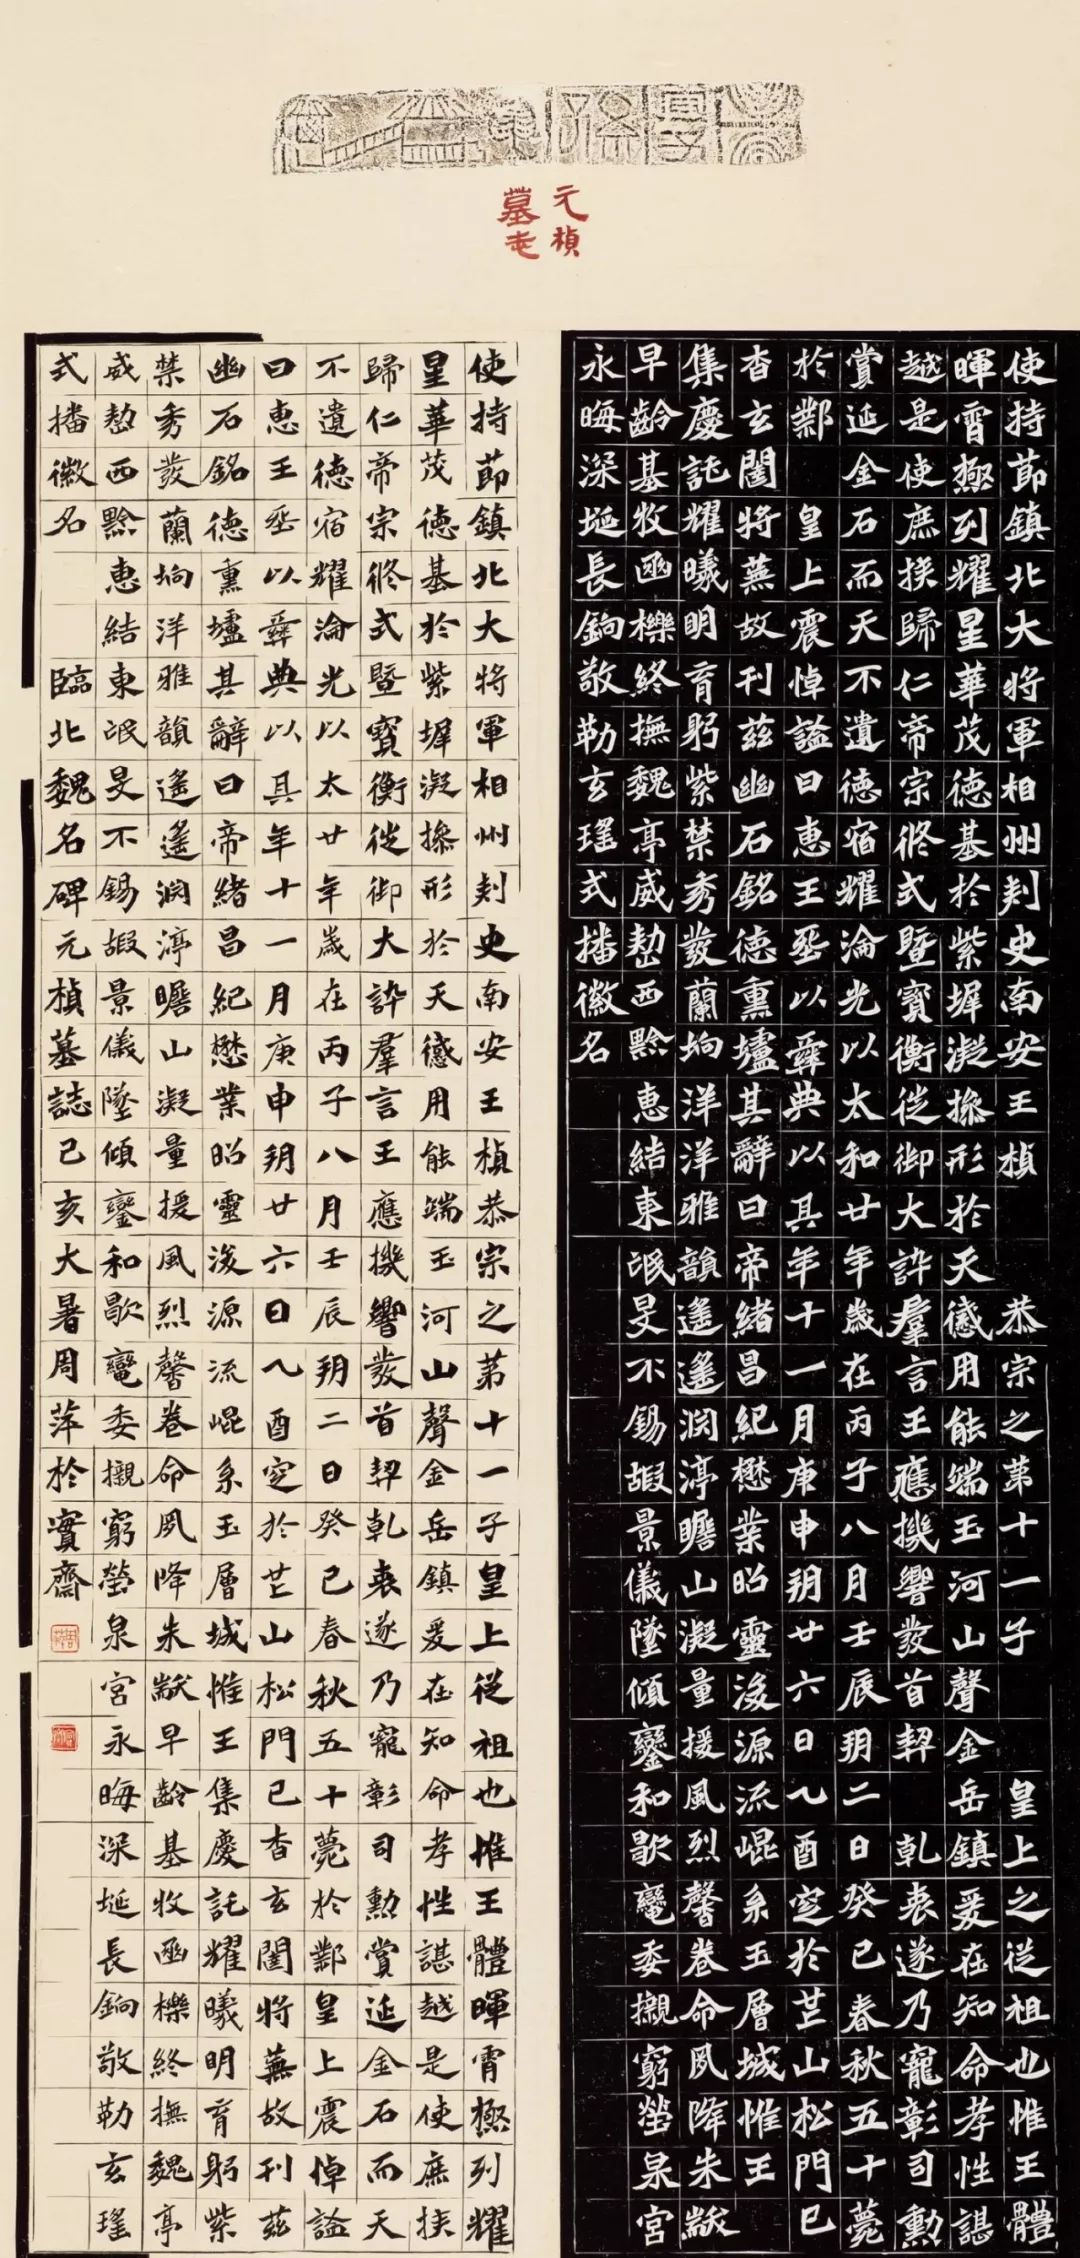 元楨
墓志
使持節鎮北大將軍相州刺史南安王楨 恭宗之第十一子 皇上之從祖也惟王體
暉霄極列耀星華茂德基於紫墀凝操形於天感用能端玉河山聲金岳鎮爰在知命孝性諶
越是使庶族歸仁帝宗攸式暨寳衡從御大訟羣言王應機響發首契 乾衷遂乃寵彰司勳
賞延金石而天不遺德宿耀淪光以太和廿年歲在丙子八月壬辰朔二日癸巳春秋五十薨
於鄴 皇上震悼謚曰惠王葬以彝典以其年十一月庚申朔廿六日乙酉窆於芒山松門已
杳玄闥將蕪故刊茲幽石銘德熏壚其辭曰帝緒昌紀懋業昭靈浚源流崐系玉層城惟王
集慶託耀曦明育躬紫禁秀發蘭坰洋洋雅韻遙遙淵渟瞻山凝量援風烈馨卷命夙降朱黻
早齡基牧函櫟終撫魏亭威懃西黔 惠結東氓旻不錫嘏景儀墜傾鑾和歇鸞委櫬窮塋泉宮
永晦深埏長鐍敬勒玄瑤式播徽名
使持節鎮北大將軍相州刺史南安王楨恭宗之第十一子皇上從祖也惟王體暉霄極列耀
星華茂德基於紫墀凝操形於天感用能端玉河山聲金岳鎮爰在知命孝性諶越是使庶族
歸仁帝宗攸式暨寳衡從御大訟羣言王應機響發首契乾衷遂乃寵彰司勳賞延金石而天
不遺德宿耀淪光以太廿年歲在丙子八月壬辰朔二日癸巳春秋五十薨於鄴皇上震悼謚
曰惠王葬以彝典以其年十一月庚申朔廿六日乙酉窆於芒山松門已杳玄闥將蕪故刊茲
幽石銘德熏壚其辭曰帝緒昌紀懋業昭靈浚源流崐系玉層城惟王集慶託耀曦明育躬紫
禁秀發蘭坰洋雅韻遙遙淵渟瞻山凝量援風烈馨卷命夙降朱黻早齡基牧函櫟終撫魏亭
威懃西黔惠結東氓旻不錫嘏景儀墜傾鑾和歇鸞委櫬窮塋泉宮永晦深埏長鐍敬勒玄瑤
式播徽名 臨北魏名碑元楨墓誌己亥大暑周萍於實齋